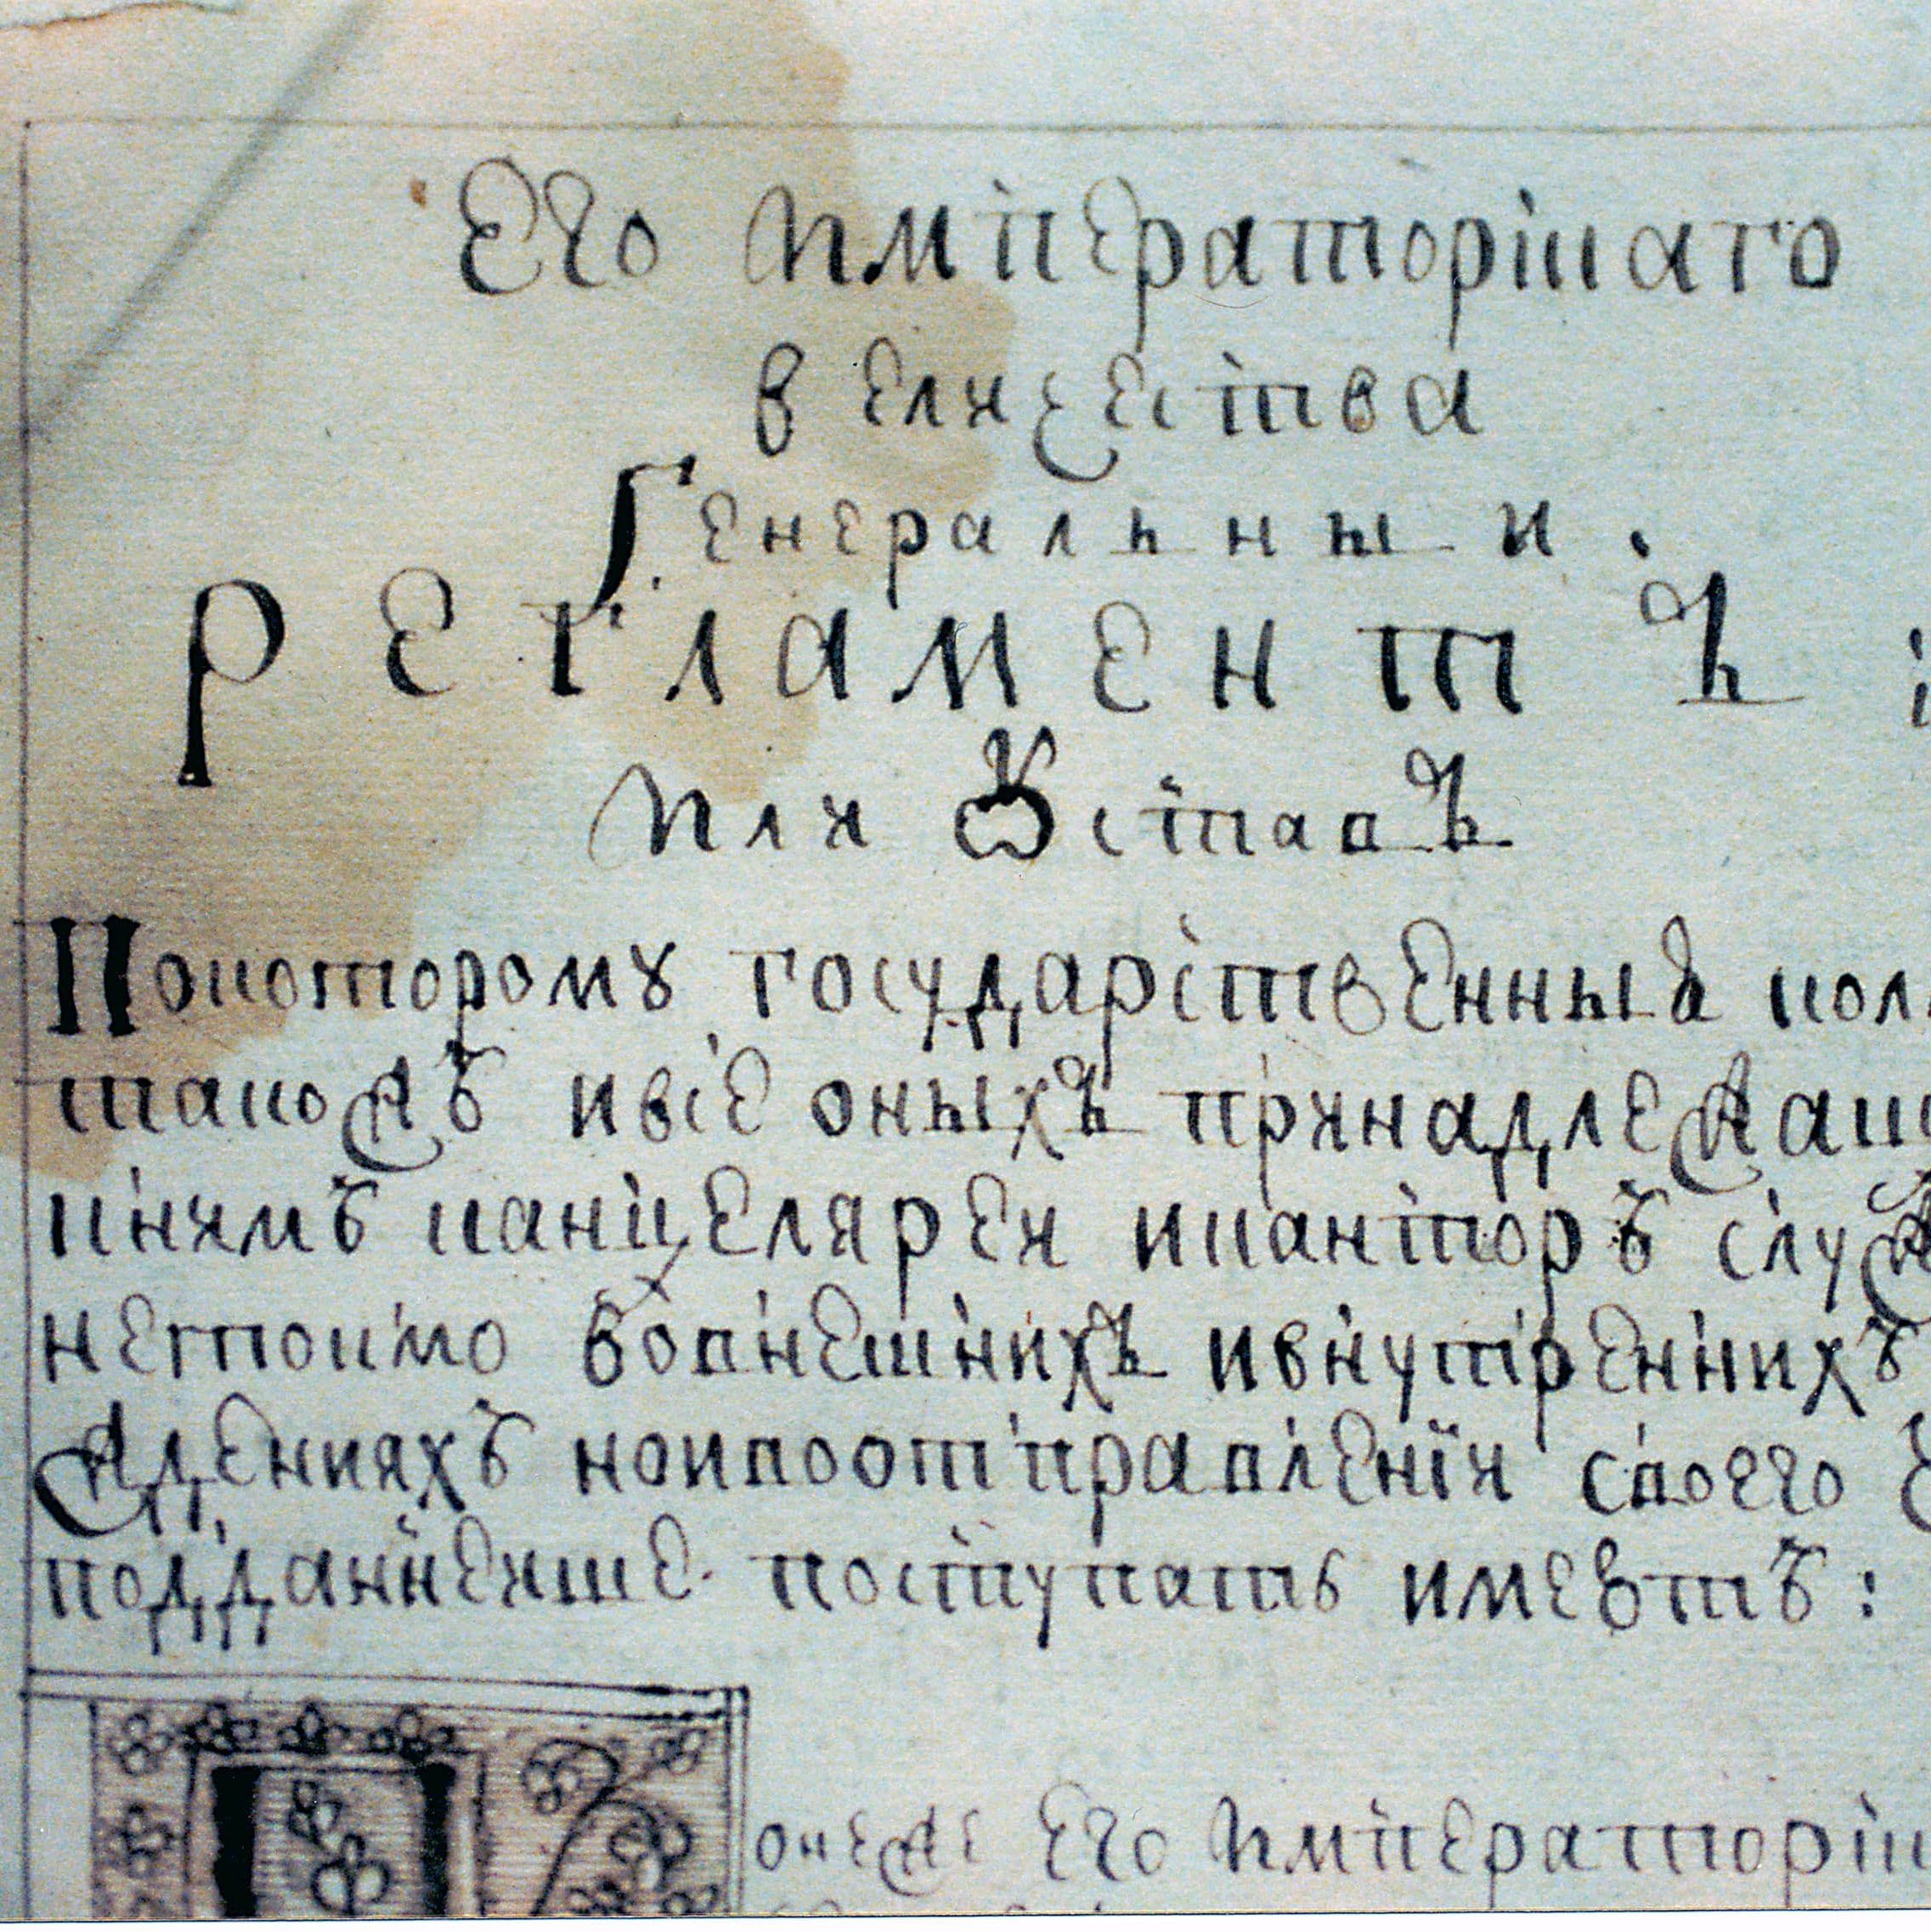 Его императорскаго
величества
Генеральныи.
регламентъ:
или Ꙋставъ
Покоторомꙋ государственныя кол
такожъ ивсе оныхъ принадлежащ
книмъ канцеляреи иканторъ служ
нетокмо вовнешнихъ ивнутренних̾ъ
жденияхъ ноивоотправлении своего
подданнеише поступать имеютъ:
Понеже Его Императорск